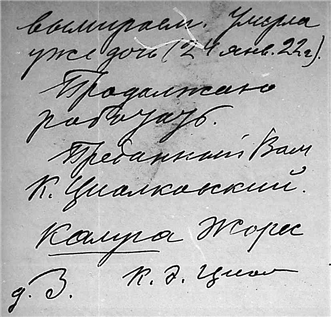 вымираем. Умерла
уже дочь (24 янв. 22г).
Продолжаю
работать.
Преданный Вам
К. Циалковский.
Калуга Жорес
д. 3. К. Э. Циол